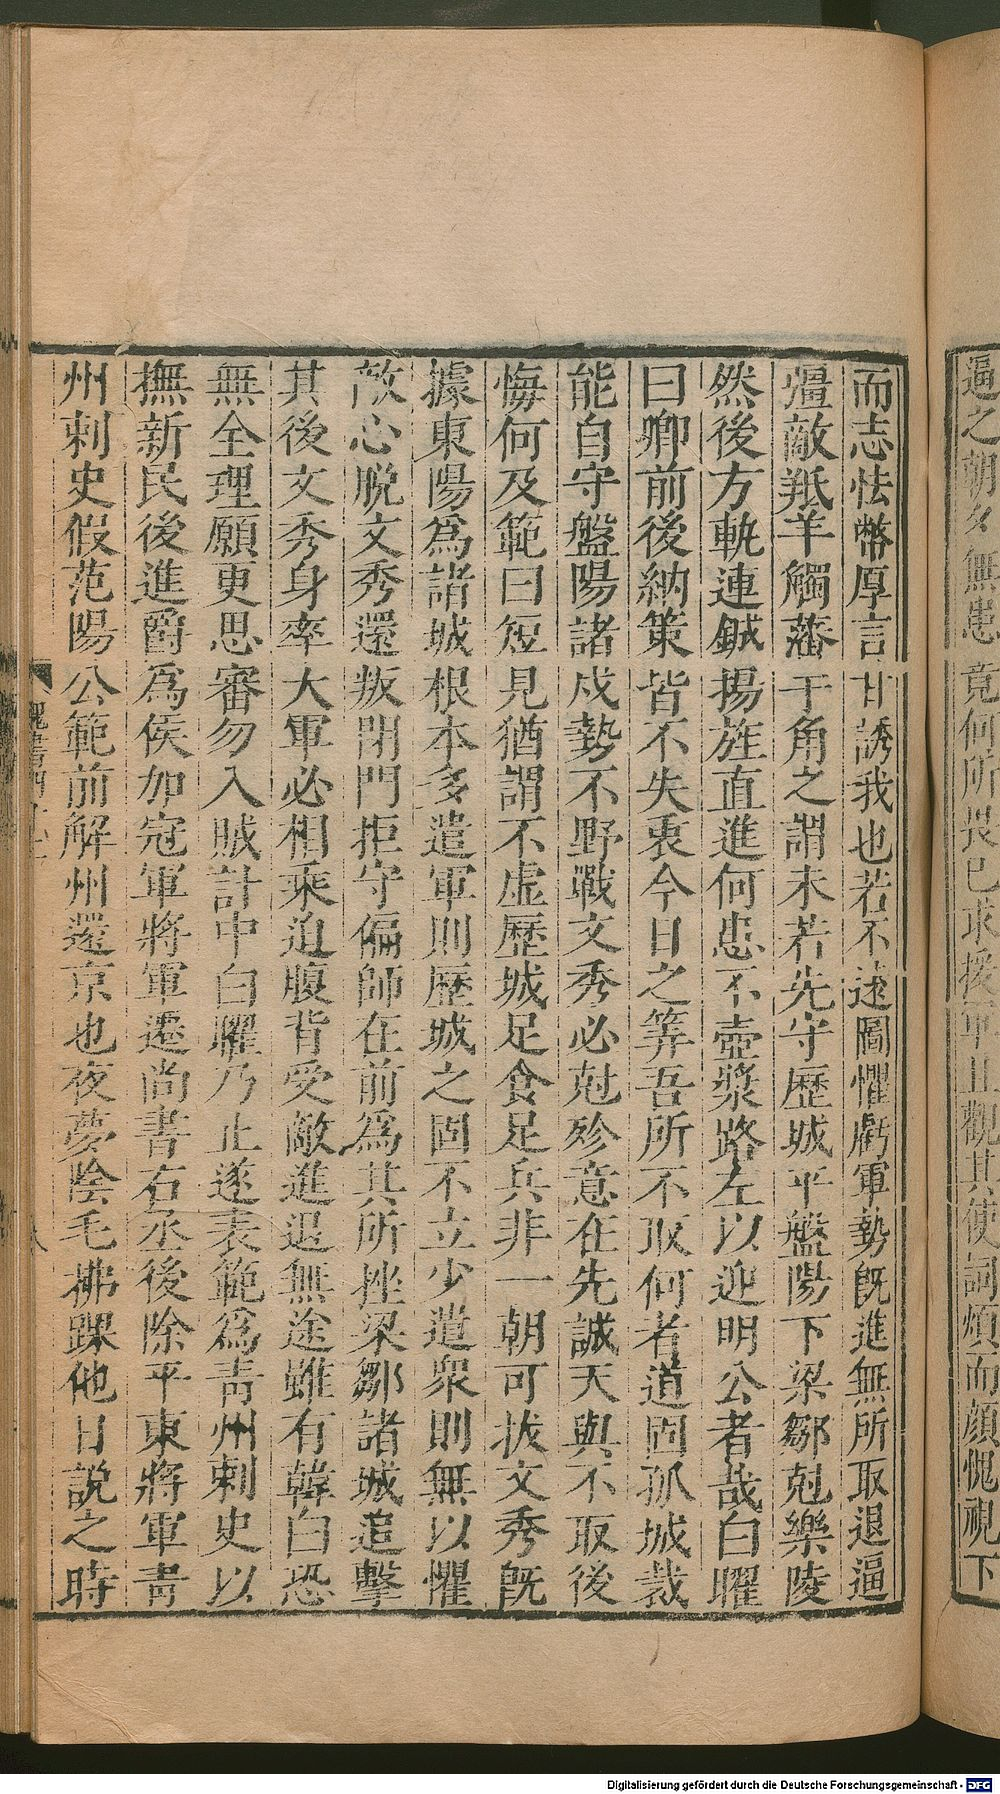 逼之朝夕無患竟何所畏已求援軍且觀其使詞煩而顔愧視下
而志怯幣厚言甘誘我也若不遠圖懼虧軍勢旣進無所取退逼
彊敵羝羊觸藩千角之謂未若先守歷城平盤陽下梁鄒尅樂陵
然後方軌連鉞揚旌直進何患不壺漿路左以迎明公者哉白曜
曰卿前後納策皆不失衷今日之筭吾所不取何者道固孤城裁
能自守盤陽諸戍勢不野戰文秀必尅殄意在先誠天與不取後
悔何及範曰短見猶謂不虛歷城足食足兵非一朝可拔文秀旣
據東陽爲諸城根本多遣軍則歷城之固不立少遣衆則無以懼
敵心脫文秀還叛閉門拒守偏師在前爲其所挫梁鄒諸城追擊
其後文秀身率大軍必相乘迫腹背受敵進退無途雖有韓白恐
無全理願更思審勿入賊計中白曜乃止遂表範爲靑州刺史以
撫新民後進爵爲侯加冠軍將軍遷尚書右丞後除平東將軍靑
州刺史假范陽公範前解州還京也夜夢陰毛拂踝他日說之時
Digitalisierung gefördert durch die Deutsche Forschungsgemeinschaft - DFG